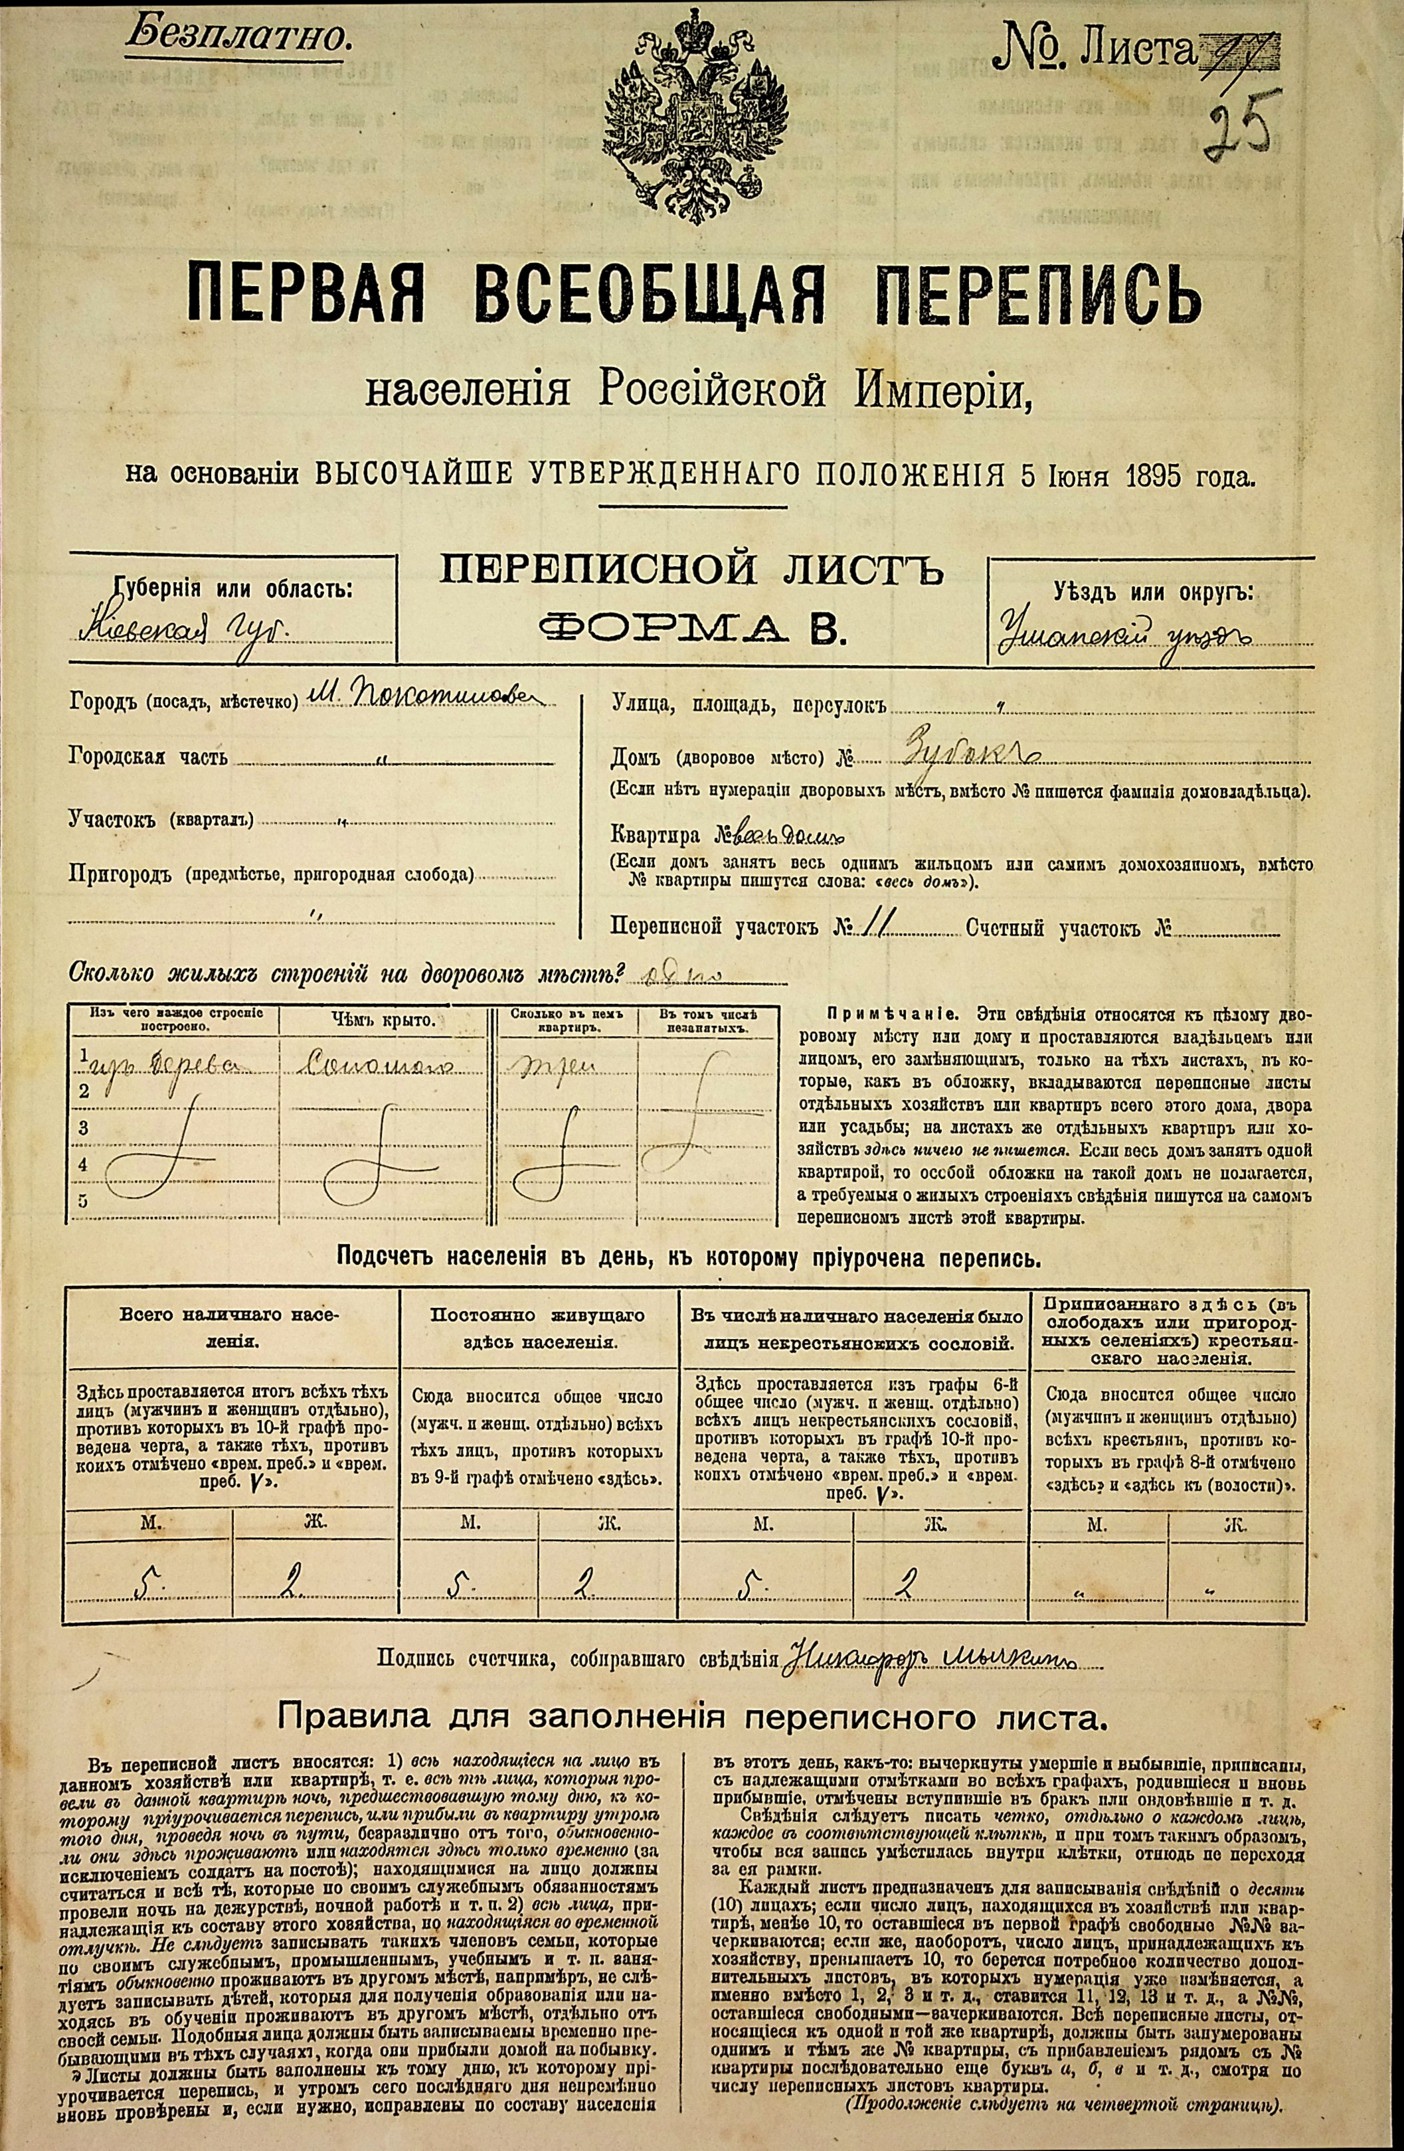 Безплатно.
№. Листа 17
25
ПЕРВАЯ ВСЕОБЩАЯ ПЕРЕПИСЬ
населенія Россійской Имперіи,
на основаніи ВЫСОЧАЙШЕ УТВЕРЖДЕННАГО ПОЛОЖЕНІЯ 5 Іюня 1895 года.
Губернія или область:
Кіевская губ.
ПЕРЕПИСНОЙ ЛИСТЪ
ФОРМА В.
Уѣздъ или округъ:
Уманскій уѣздъ
Городъ (посадъ, мѣстечко) М. Покотилова
Городская часть "
Участокъ (кварталъ) "
Пригородъ (предмѣстье, пригородная слобода)
"
Улица, площадь, переулокъ "
Домъ (дворовое мѣсто) № Зубокъ
(Если нѣтъ нумераціи дворовыхъ мѣстъ, вмѣсто № пишется фамилія домовладѣльца).
Квартира № весь домъ
(Если домъ занятъ весь однимъ жильцомъ или самимъ домохозяиномъ, вмѣсто
№ квартиры пишутся слова: «весь домъ»).
Переписной участокъ № 11 Счетный участокъ №
Сколько жилыхъ строеній на дворовомъ мѣстѣ? одно
Изъ чего каждое строеніе
построено.
Чѣмъ крыто.
Сколько въ немъ
квартиръ.
Въ томъ числѣ
незанятыхъ.
1 изъ дерева Соломою три
2
3
4
5
Примѣчаніе. Эти свѣдѣнія относятся къ цѣлому дво-
ровому мѣсту или дому и проставляются владѣльцемъ или
лицомъ, его замѣняющимъ, только на тѣхъ листахъ, въ ко-
торые, какъ въ обложку, вкладываются переписные листы
отдѣльныхъ хозяйствъ или квартиръ всего этого дома, двора
или усадьбы; на листахъ же отдѣльныхъ квартиръ или хо-
зяйствъ здѣсь ничего не пишется. Если весь домъ занятъ одной
квартирой, то особой обложки на такой домъ не полагается,
а требуемыя о жилыхъ строеніяхъ свѣдѣнія пишутся на самомъ
переписномъ листѣ этой квартиры.
Подсчетъ населенія въ день, къ которому пріурочена перепись.
Всего наличнаго насе-
ленія.
Здѣсь проставляется итогъ всѣхъ тѣхъ
лицъ (мужчинъ и женщинъ отдѣльно),
противъ которыхъ въ 10-й графѣ про-
ведена черта, а также тѣхъ, противъ
коихъ отмѣчено «врем. преб.» и «врем.
преб. V».
М. Ж.
5. 2.
Постоянно живущаго
здѣсь населенія.
Сюда вносится общее число
(мужч. и женщ. отдѣльно) всѣхъ
тѣхъ лицъ, противъ которыхъ
въ 9-й графѣ отмѣчено «здѣсь».
М. Ж.
5. 2.
Въ числѣ наличнаго населенія было
лицъ некрестьянскихъ сословій.
Здѣсь проставляется изъ графы 6-й
общее число (мужч. и женщ. отдѣльно)
всѣхъ лицъ некрестьянскихъ сословій,
противъ которыхъ въ графѣ 10-й про-
ведена черта, а также тѣхъ, противъ
коихъ отмѣчено «врем. преб.» и «врем.
преб. V».
М. Ж.
5. 2
Приписаннаго здѣсь (въ
слободахъ или пригород-
ныхъ селеніяхъ) крестьян-
скаго населенія.
Сюда вносится общее число
(мужчинъ и женщинъ отдѣльно)
всѣхъ крестьянъ, противъ ко-
торыхъ въ графѣ 8-й отмѣчено
«здѣсь» и «здѣсь къ (волости)».
М. Ж.
" "
Подпись счетчика, собиравшаго свѣдѣнія Никифоръ
Правила для заполненія переписного листа.
Въ переписной листъ вносятся: 1) всѣ находящіеся на лицо въ
данномъ хозяйствѣ или квартирѣ, т. е. всѣ тѣ лица, которыя про-
вели въ данной квартирѣ ночь, предшествовавшую тому дню, къ ко-
торому пріурочивается перепись, или прибыли въ квартиру утромъ
того дня, проведя ночь въ пути, безразлично отъ того, обыкновенно-
ли они здѣсь проживаютъ или находятся здѣсь только временно (за
исключеніемъ солдатъ на постоѣ); находящимися на лицо должны
считаться и всѣ тѣ, которые по своимъ служебнымъ обязанностямъ
провели ночь на дежурствѣ, ночной работѣ и т. п. 2) всѣ лица, при-
надлежащія къ составу этого хозяйства, но находящіяся во временной
отлучкѣ. Не слѣдуетъ записывать такихъ членовъ семьи, которые
по своимъ служебнымъ, промышленнымъ, учебнымъ и т. п. заня-
тіямъ обыкновенно проживаютъ въ другомъ мѣстѣ, напримѣръ, не слѣ-
дуетъ записывать дѣтей, которыя для полученія образованія или на-
ходясь въ обученіи проживаютъ въ другомъ мѣстѣ, отдѣльно отъ
своей семьи. Подобныя лица должны быть записываемы временно пре-
бывающими въ тѣхъ случаяхъ, когда они прибыли домой на побывку.
Листы должны быть заполнены къ тому дню, къ которому прі-
урочивается перепись, и утромъ сего послѣдняго дня непремѣнно
вновь провѣрены и, если нужно, исправлены по составу населенія
въ этотъ день, какъ-то: вычеркнуты умершіе и выбывшіе, приписаны,
съ надлежащими отмѣтками во всѣхъ графахъ, родившіеся и вновь
прибывшіе, отмѣчены вступившіе въ бракъ или овдовѣвшіе и т. д.
Свѣдѣнія слѣдуетъ писать четко, отдѣльно о каждомъ лицѣ,
каждое въ соотвѣтствующей клѣткѣ, и при томъ такимъ образомъ,
чтобы вся запись умѣстилась внутри клѣтки, отнюдь не переходя
за ея рамки.
Каждый листъ предназначенъ для записыванія свѣдѣній о десяти
(10) лицахъ; если число лицъ, находящихся въ хозяйствѣ или квар-
тирѣ, менѣе 10, то оставшіеся въ первой графѣ свободные №№ за-
черкиваются; если же, наоборотъ, число лицъ, принадлежащихъ къ
хозяйству, превышаетъ 10, то берется потребное количество допол-
нительныхъ листовъ, въ которыхъ нумерація уже измѣняется, а
именно вмѣсто 1, 2, 3 и т. д., ставится 11, 12, 13 и т. д., а №№,
оставшіеся свободными—вачеркиваются. Всѣ переписные листы, от-
носящіеся къ одной и той же квартирѣ, должны быть занумерованы
однимъ и тѣмъ же № квартиры, съ прибавленіемъ рядомъ съ №
квартиры послѣдовательно еще буквъ а, б, в и т. д., смотря по
числу переписныхъ листовъ квартиры.
(Продолженіе слѣдуетъ на четвертой страницѣ).